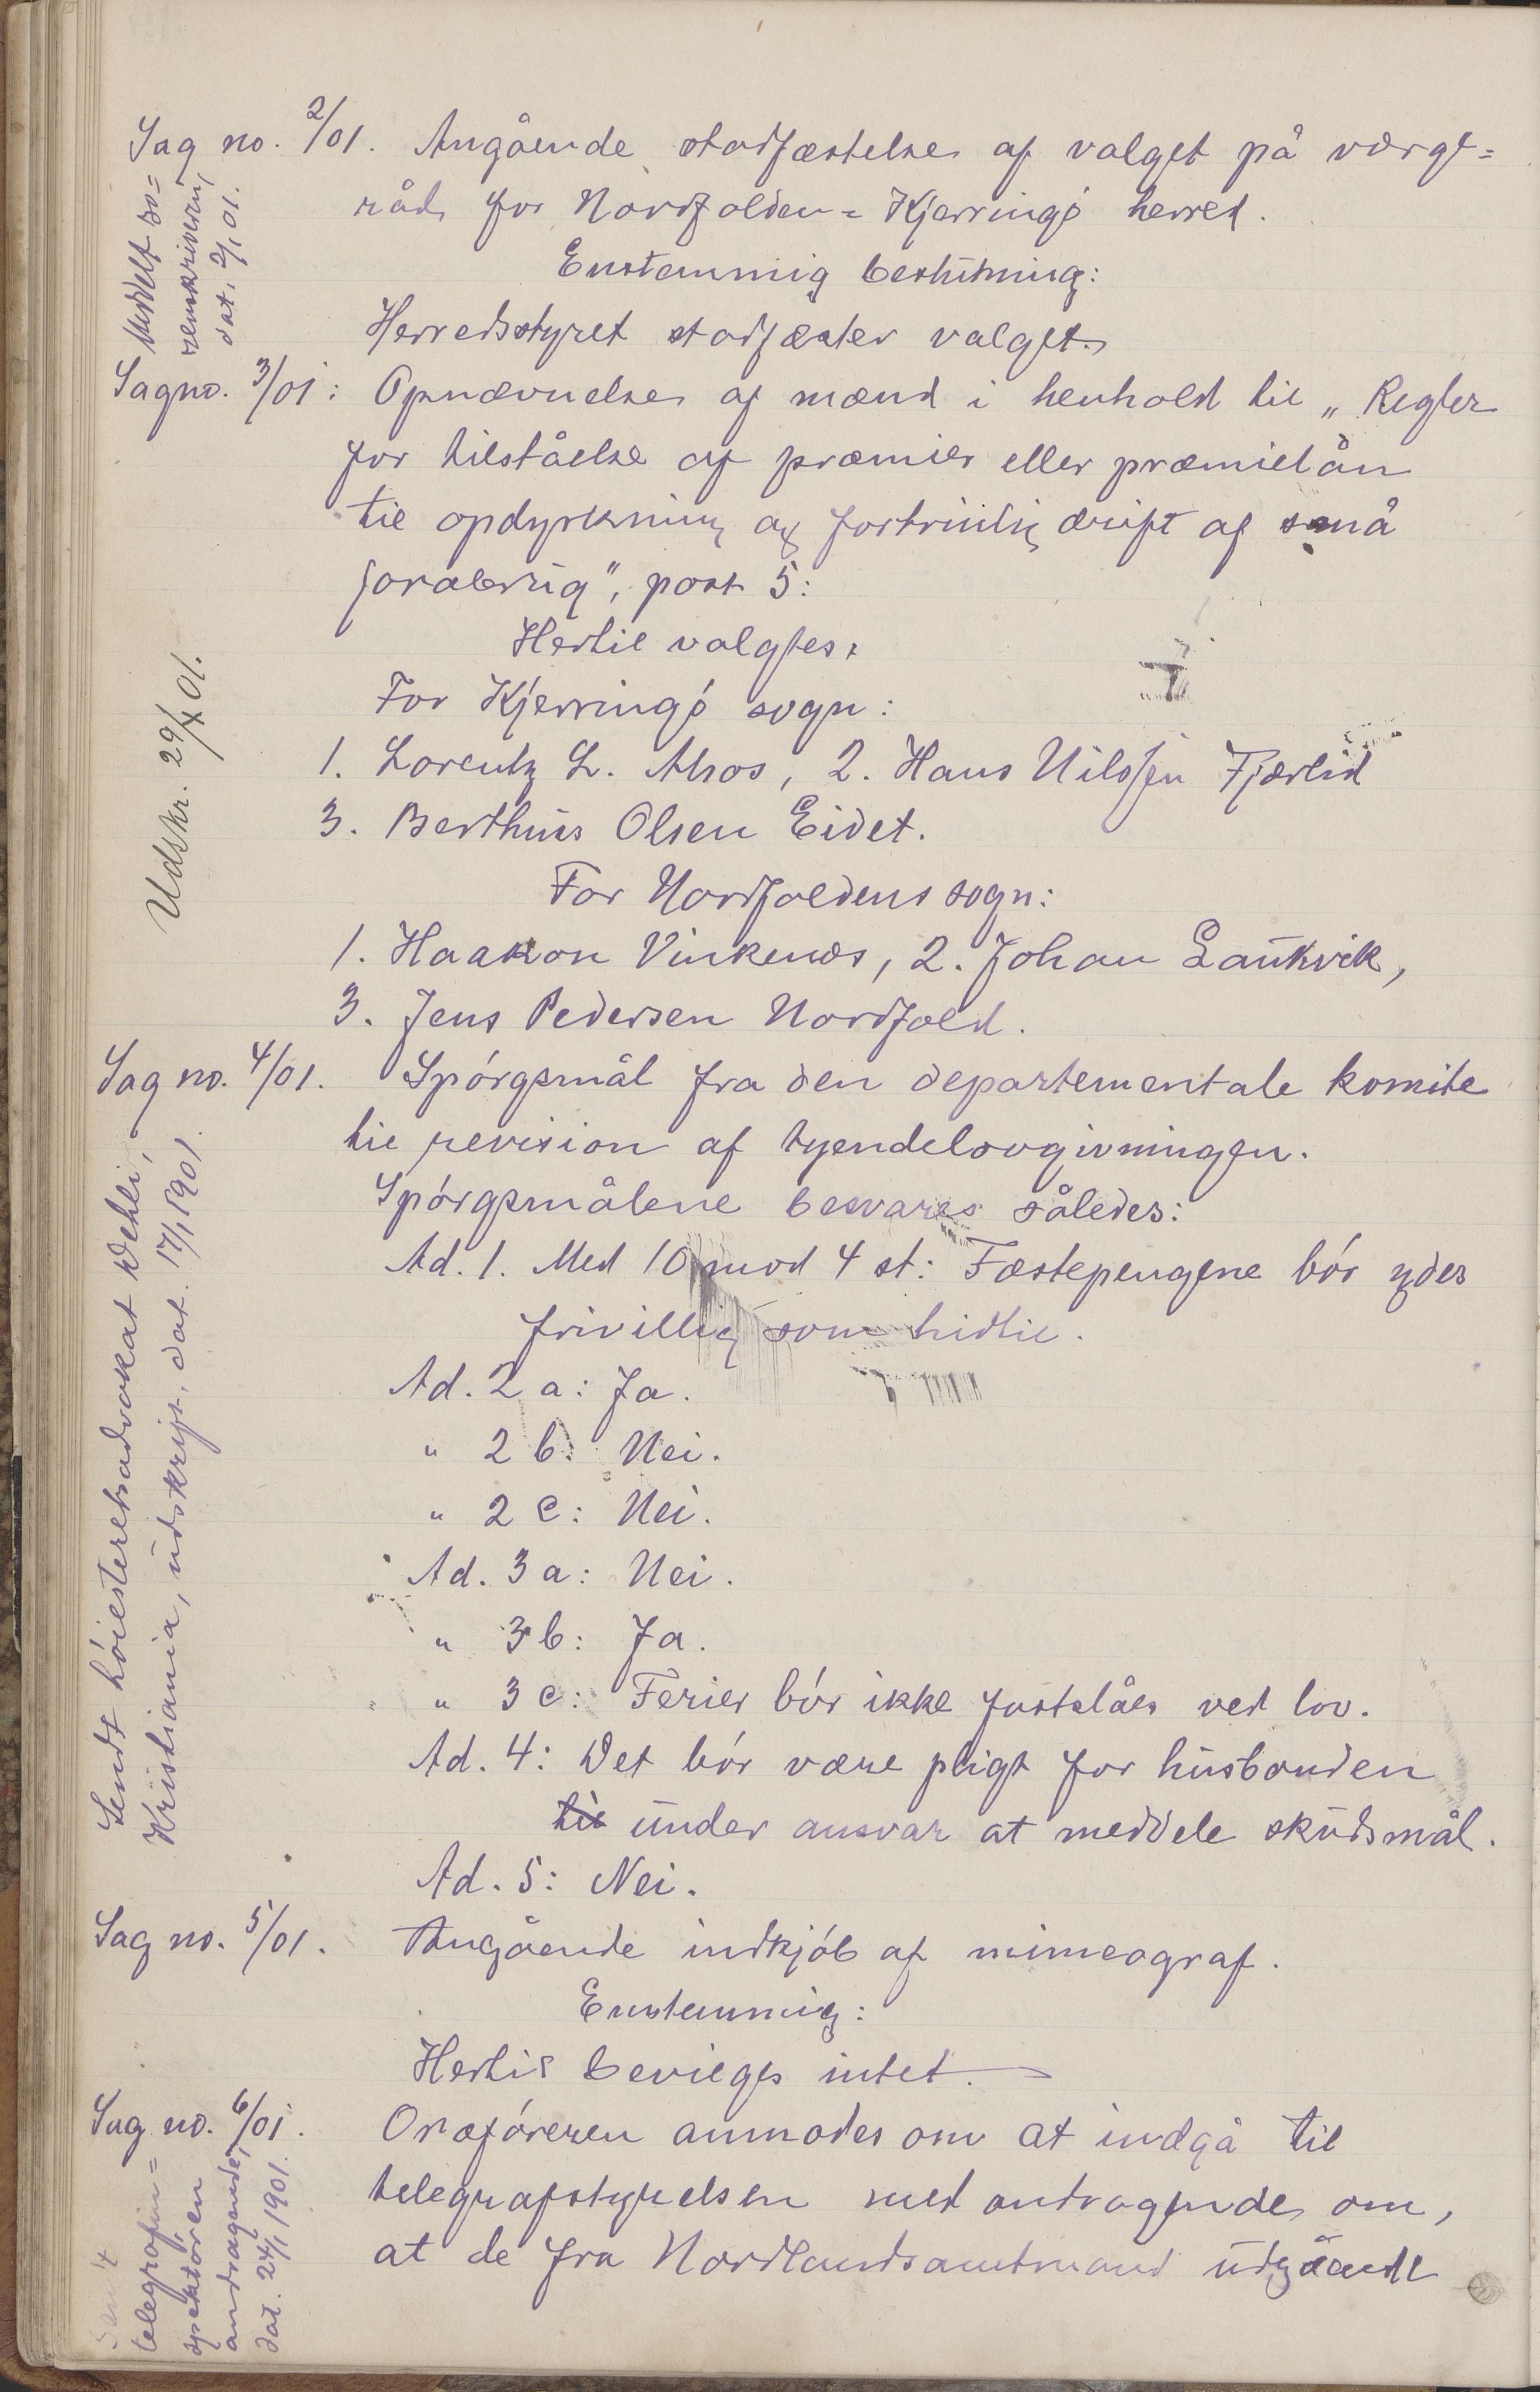 Sag no. 2/01. Angående stadfæstelse af valget på værge=
råd for Nordfolden=Kjerringø herred.
Enstemmig beslutning:
Herredsstyret stadfæster valget.
Meddelt so=
renskriveren,
dat. 2/1 01.
Sag no. 3/01: Opnævnelse af mænd i henhold til „Regler
for tilståelse af præmier eller præmielån
til opdyrkning og fortrinlig drift af små
jordbrug", post 5:
Hertil valgtes:
For Kjerringø sogn:
1. Lorentz L. Alsos, 2. Hans Nilssen Fjærlid
3. Berthius Olsen Eidet.
For Nordfoldens sogn:
1. Haakon Vinkenes, 2. Johan Laukvik,
3. Jens Pedersen Nordfold.
Udskr. 29/4 01.
Sag no. 4/01. Spørgsmål fra den departementale komite
til revision af tyendelovgivningen.
Spørgsmålene besvares således:
Ad. 1. Med 10 mod 4 st: Fæstepengene bør ydes
frivillig som hidtil.
Ad. 2 a: Ja.
" 2 b: Nei.
" 2 c: Nei.
Ad. 3 a: Nei.
" 3 b: Ja.
" 3 c: Ferier bør ikke fastslåes ved lov.
Ad. 4: Det bør være pligt for husbonden
til under ansvar at meddele skudsmål.
Ad. 5: Nei.
Sendt høiesteretsadvokat Dehli,
Kristiania, udskrift, dat. 17/1 1901.
Sag no. 5/01. Angående indkjøb af mimeograf.
Enstemmig:
Hertil bevilges intet.
Sag no. 6/01. Ordføreren anmodes om at indgå til
telegrafstyrelsen med andragende om,
at de fra Nordlandsamtmand udgående
Sendt
telegrafin=
spektøren
andragende,
dat. 24/1 1901.